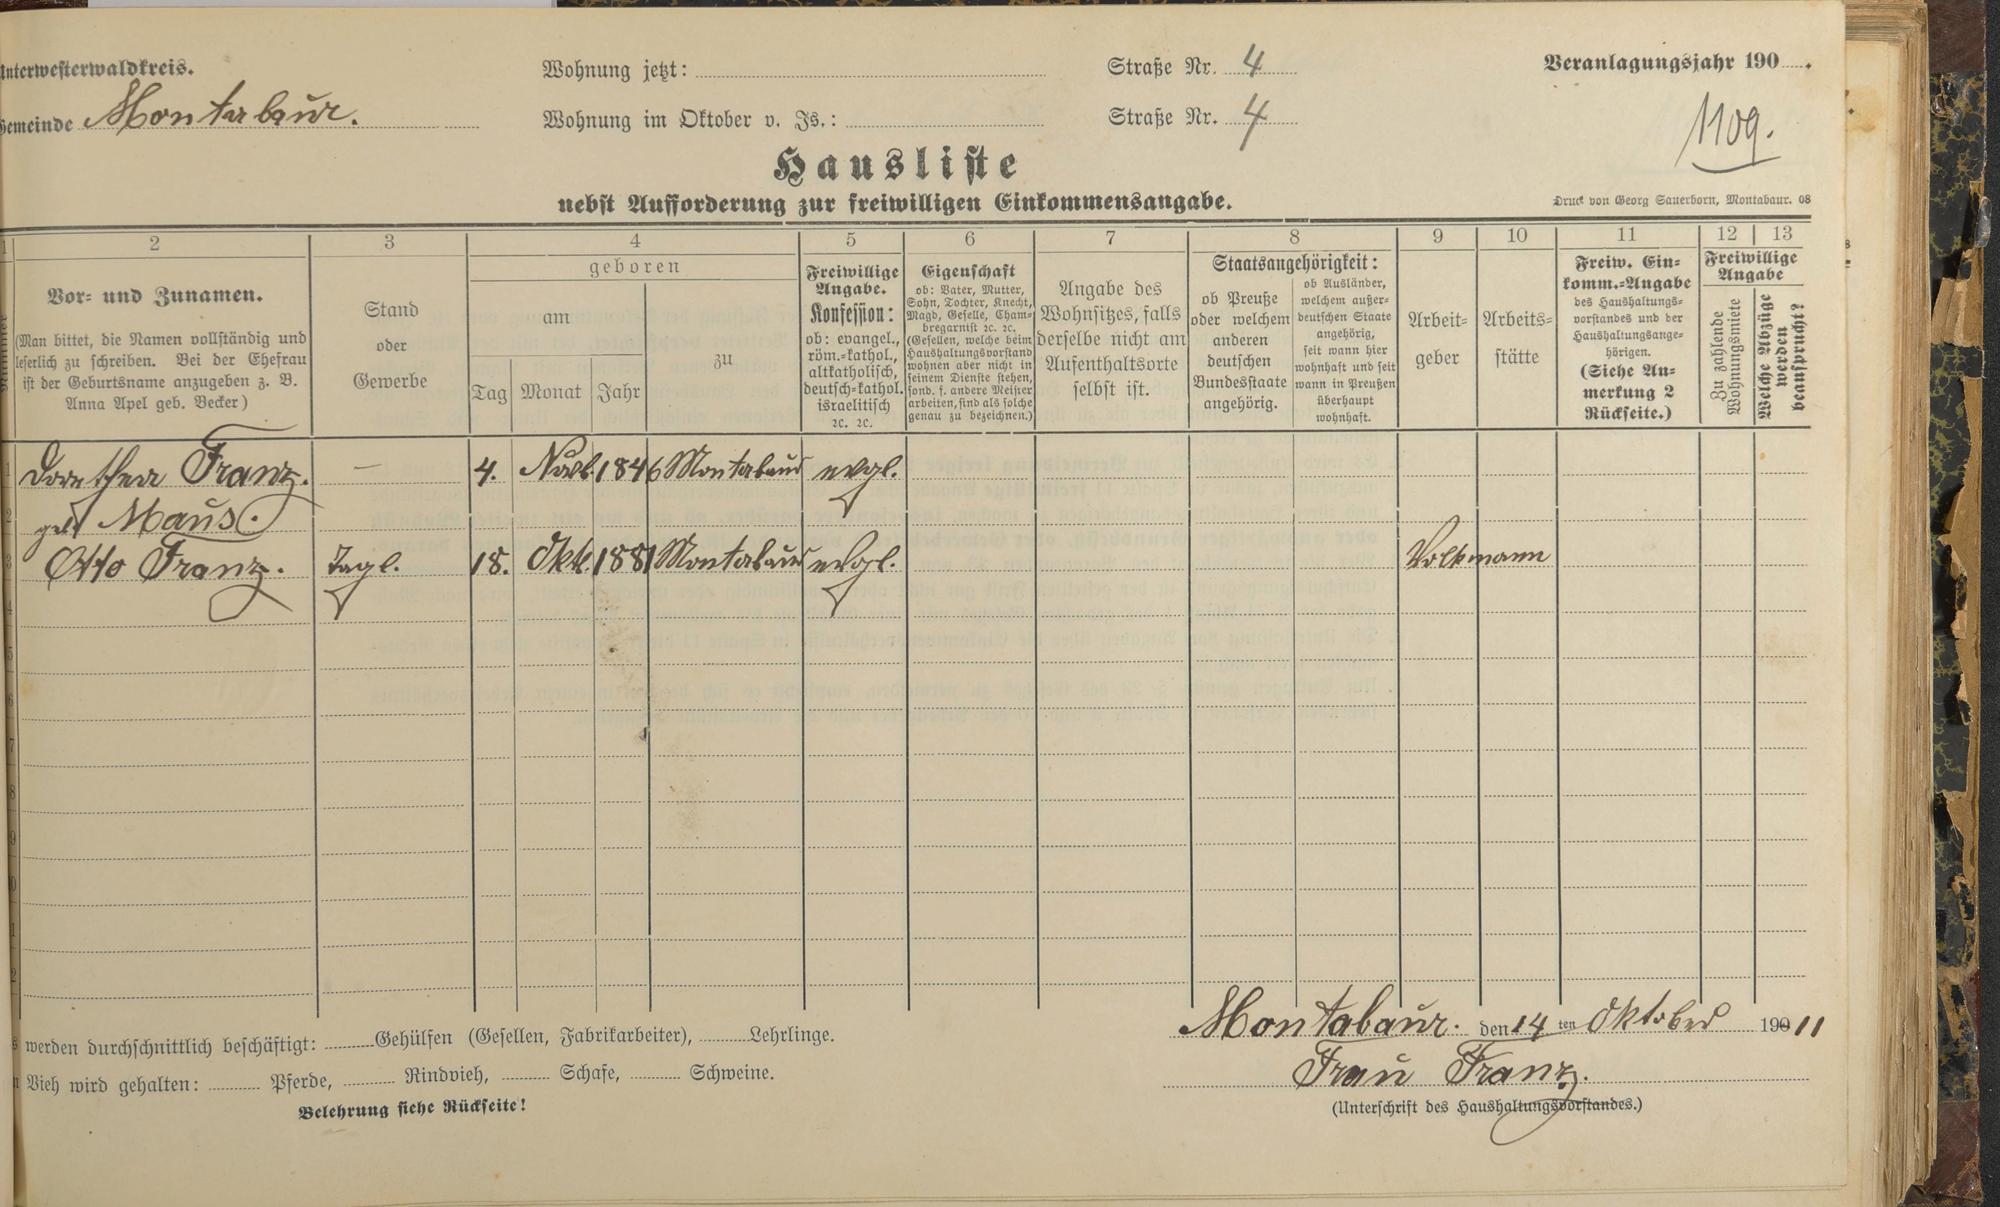 Unterwesterwaldkreis.
Wohnung jetzt:
Straße Nr. 4
Veranlagungsjahr 190 .
Gemeinde Montabaur.
Wohnung im Oktober v. Js.:
Straße Nr. 4
1109.
Hausliste
nebst Aufforderung zur freiwilligen Einkommensangabe.
Druck von Georg Sauerborn, Montabaur. 08
1 2 3 4 5 6 7 8 9 10 11 12 13
Vor- und Zunamen.
(Man bittet, die Namen vollständig und
leserlich zu schreiben. Bei der Ehefrau
ist der Geburtsname anzugeben z. B.
Anna Apel geb. Becker)
Stand
oder
Gewerbe
geboren
am
zu
Tag Monat Jahr
Freiwillige
Angabe.
Konfession:
ob: evangel.,
röm.-kathol.,
altkatholisch,
deutsch-kathol.
israelitisch
2c. 2c.
Eigenschaft
ob: Vater, Mutter,
Sohn, Tochter, Knecht,
Magd, Geselle, Cham-
bregarnist 2c. 2c.
(Gesellen, welche beim
Haushaltungsvorstand
wohnen aber nicht in
seinem Dienste stehen,
sond. f. andere Meister
arbeiten, sind als solche
genau zu bezeichnen.)
Angabe des
Wohnsitzes, falls
derselbe nicht am
Aufenthaltsorte
selbst ist.
Staatsangehörigkeit:
ob Preuße
oder welchem
anderen
deutschen
Bundesstaate
angehörig.
ob Ausländer,
welchem außer-
deutschen Staate
angehörig,
seit wann hier
wohnhaft und seit
wann in Preußen
überhaupt
wohnhaft.
Arbeit-
geber
Arbeits-
stätte
Freiw. Ein-
komm.-Angabe
des Haushaltungs-
vorstandes und der
Haushaltungsange-
hörigen.
(Siehe An-
merkung 2
Rückseite.)
Freiwillige
Angabe
Zu zahlende
Wohnungsmiete
Welche Abzüge
werden
beansprucht?
1 Dorothea Franz. — 4. Novb. 1846 Montabaur evgl.
2 geb. Maus.
3 Otto Franz. Tagl. 18. Okt. 1881 Montabaur evgl. Volkmann
4
5
6
7
8
9
10
werden durchschnittlich beschäftigt: Gehülfen (Gesellen, Fabrikarbeiter), Lehrlinge.
Vieh wird gehalten: Pferde, Rindvieh, Schafe, Schweine.
Belehrung siehe Rückseite!
Montabaur. den 14 ten Oktober 190 11
Frau Franz.
(Unterschrift des Haushaltungsvorstandes.)